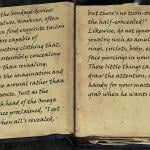 the bondage devices
selves. However, often
find exquisite tailors
are capable of
constructing clothing that,
ostensibly concealing
than revealing,
the imagination and
arousal rather than
Just as the
head of the Omega
once proclaimed, "I get
when all's revealed,"
but there's no turn-o
the half-concealed!"
Likewise, do not igno
jewelry such as ankl
rings, circlets, body,
face piercings in your
These little things ca
draw the attention, a
handy for your maste
grab when he wants